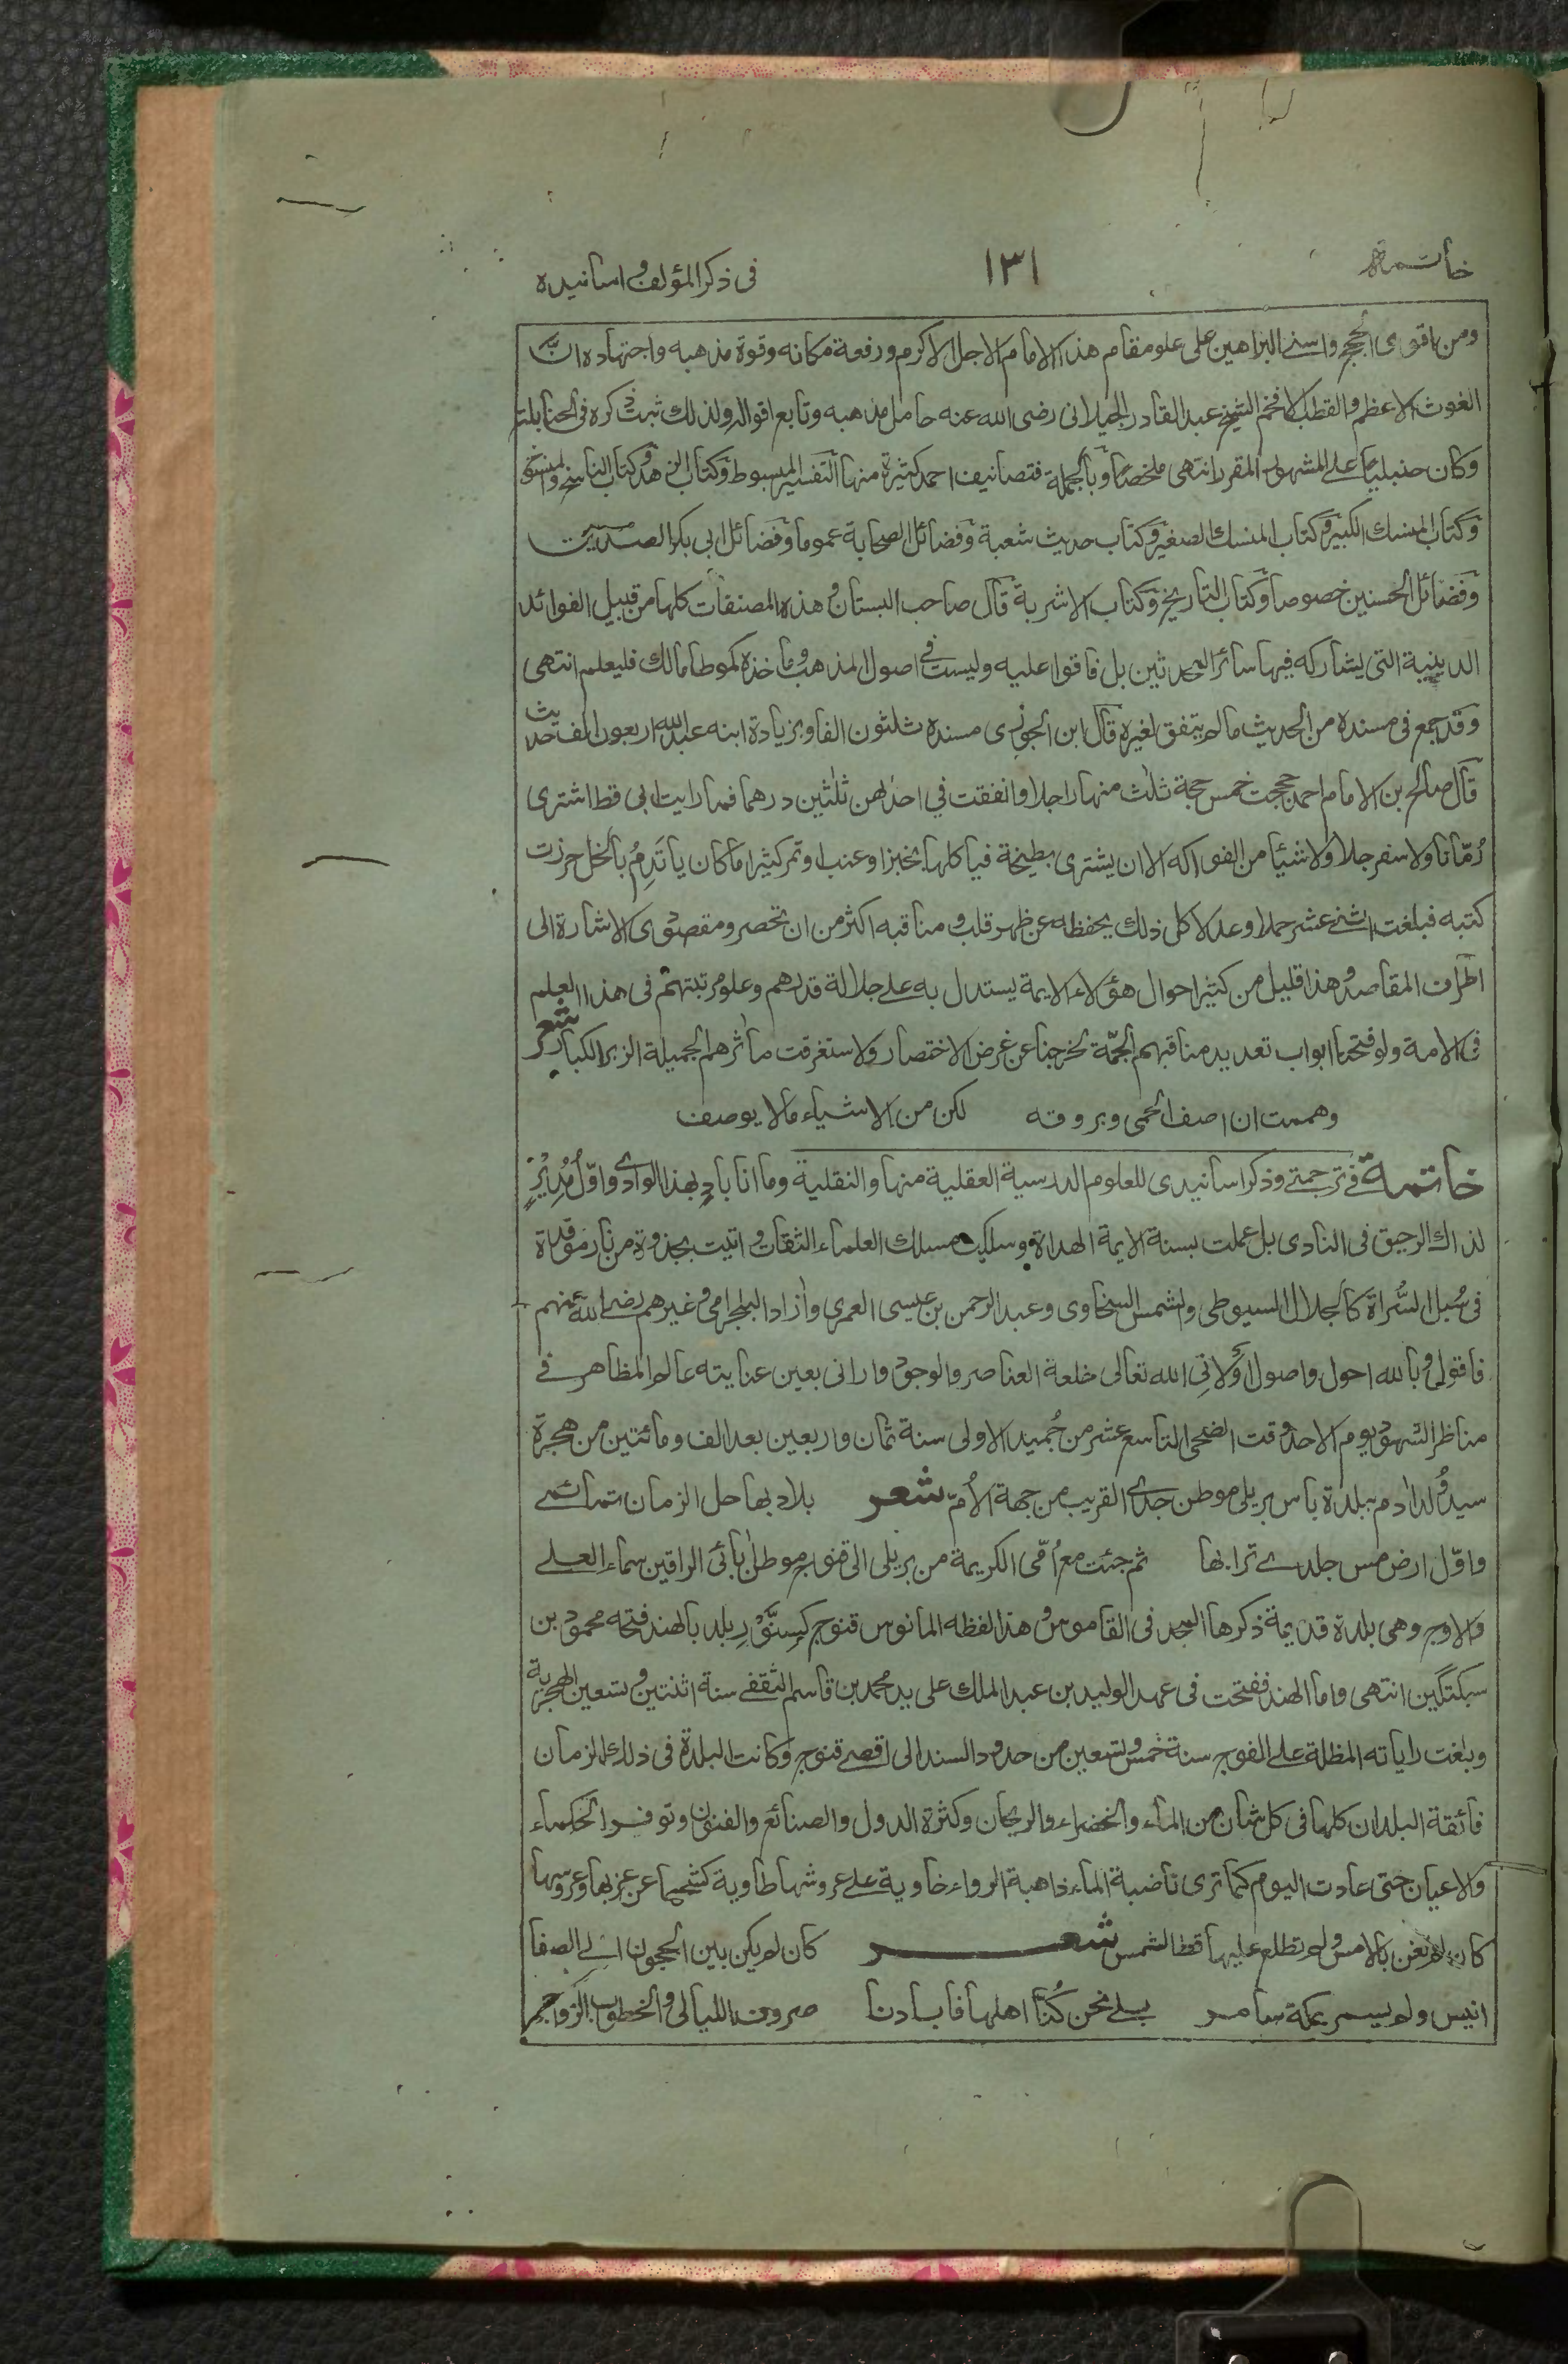 خاتمة ١٣١ فى ذكر المؤلف و اسانيده
ومن اقوى الحجج واسنى البراهين على علو مقام هذا الامام الاجل الاكرم ورفعة مكانه وقوة مذهبه واجتهاده انّ
الغوث الاعظم والقطب الافخم الشيخ عبد القادر الجيلانى رضى الله عنه حامل مذهبه وتابع اقواله ولذلك ثبت ذكره فى الحنابلة
وكان حنبليا على المشهور المقرر انتهى ملخصًا وبالجملة فتصانيف احمد كثيرة منها التفسير المبسوط وكتاب الزهد وكتاب الناسخ والمنسوخ
وكتاب المنسك الكبير وكتاب المنسك الصغير وكتاب حديث شعبة وفضائل الصحابة عموما وفضائل ابى بكر الصديق
وفضائل الحسنين خصوصا وكتاب التاريخ وكتاب الاشربة قال صاحب البستان و هذه المصنفات كلها من قبيل الفوائد
الدينية التى يشاركه فيها سائر المحدثين بل فاقوا عليه وليست فى اصول المذهب و ماخذه كموطا مالك فليعلم انتهى
وقد جمع فى مسنده من الحديث مالم يتفق لغيره قال ابن الجوزى مسنده ثلثون الفا وبزيادة ابنه عبد الله اربعون الف حديث
قال صالح بن الامام احمد حججت خمس حجة ثلاث منها راجلا وانفقت في احدٰهن ثلٰثين درهما فما رايت ابى قط اشترى
رُمّانا ولا سفرجلا ولا شيئا من الفواكه الا ان يشترى بطيخة فياكلها بخبز او عنب او تمر كثيرا ما كان ياتَدِمُ بالخل حرزت
كتبه فبلغت اثنى عشر حملا وعدلا كل ذلك يحفظه عن ظهر قلب و مناقبه اكثر من ان تحصر ومقصودى الاشارة الى
اطراف المقاصد و هذا قليل من كثير احوال هؤلاء الايمة يستدل به على جلالة قدرهم وعلو مرتبتهم فى هذا العلم
فى الامة ولو فتحنا ابواب تعديد مناقبهم الجمّة لخرجنا عن غرض الاختصار ولاستغرقت مآثرهم الجميلة الزبر الكبار شعر
وهممت ان اصف الحمى وبروقه لكن من الاشياء مالا يوصف
خاتمة فى ترجمتى وذكر اسانيدى للعلوم الدرسية العقلية منها والنقلية وما انا بادٍ بهذا الوادى واوّل مُدِيْرٍ
لذاك الرحيق فى النادى بل عملت بسنة الايمة الهداة و سلكت مسلك العلماء الثقات و اتيت بجذوة من نار موقدة
فى سُبل السُّراة كالجلال السيوطى والشمس السخاوى وعبد الرحمن بن عيسى العمرى وآزاد البلجرامى وغيرهم رضى الله عنهم
فاقول و بالله احول واصول اولانِى الله تعالى خلعة العناصر والوجود وارانى بعين عنايته عالم المظاهر فى
مناظر الشهود يوم الاحد وقت الضحى التاسع عشر من جُميد الاولى سنة ثمان واربعين بعد الف ومائتين من هجرة
سيد وُلد اٰدم ببلدة بانس بريلى موطن جدى القريب من جهة الاُمّ شعر بلاد بها حل الزمان تمائمى
واوّل ارض مس جلدى ترابها ثم جئت مع اُمّى الكريمة من بريلى الى قنوج موطن اٰبائى الراقين سماء العلى
والاوج وهى بلدة قديمة ذكرها المجد فى القاموس و هذا لفظه المانوس قنوج كسِنَّوْر بلد بالهند فتحه محمود بن
سبكتگين انتهى واما الهند ففتحت فى عهد الوليد بن عبد الملك على يد محمد بن قاسم الثقفى سنة اثنتين و تسعين الهجرية
وبلغت راياته المظلة على الفوج سنة خمس وتسعين من حدود السند الى اقصى قنوج وكانت البلدة فى ذلك الزمان
فائقة البلدان كلها فى كل شان من الماء والخضراء والريحان وكثرة الدول والصنائع والفنون وتوفر الحكماء
والاعيان حتى عادت اليوم كما ترى ناضبة الماء ذاهبة الرواء خاوية على عروشها طاوية كشحها عن عزبها وعروسها
كان لم تغن بالامس و لم تطلع عليها قط الشمس شعر كان لم يكن بين الحجون الى الصفا
انيس ولم يسمر بمكة سامر بلى نحن كُنّا اهلها فابادنا صروف الليالى والخطوب الزواجر